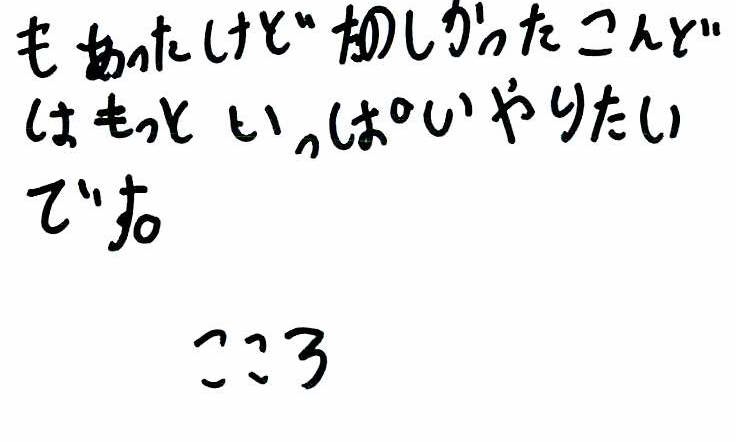 もあったけどたのしかったこんど
はもっといっぱいやりたい
です。
こころ